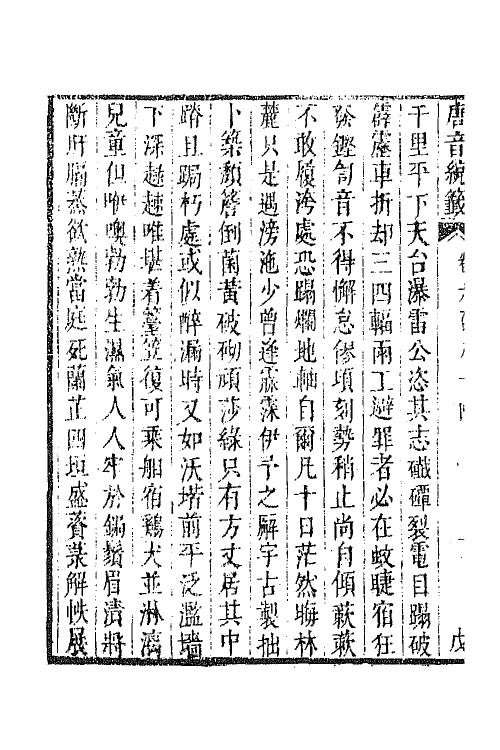 唐音統籖 卷六百八十四 一 戊
千里平下天台瀑雷公恣其志䃶磹裂電目蹋破
霹靂車折却三四輻雨工避罪者必在蚊睫宿狂
發鏗訇音不得懈怠僇頃刻勢稍止尚自傾蔌蔌
不敢履洿處恐蹋爛地軸自爾凡十日茫然晦林
麓只是遇滂沲少曾逢霡霂伊予之廨宇古製拙
卜築頽簷倒菌黄破砌頑莎緑只有方丈居其中
蹐且跼朽處或似醉漏時又如沃堦前平泛濫墻
下深趢趢唯堪着簦笠復可乘舼宿鷄犬並淋漓
兒童但咿噢勃勃生濕氣人人牢於鋦鬚眉漬將
斷肝膈蒸欲熟當庭死蘭芷四垣盛薋菉解帙展